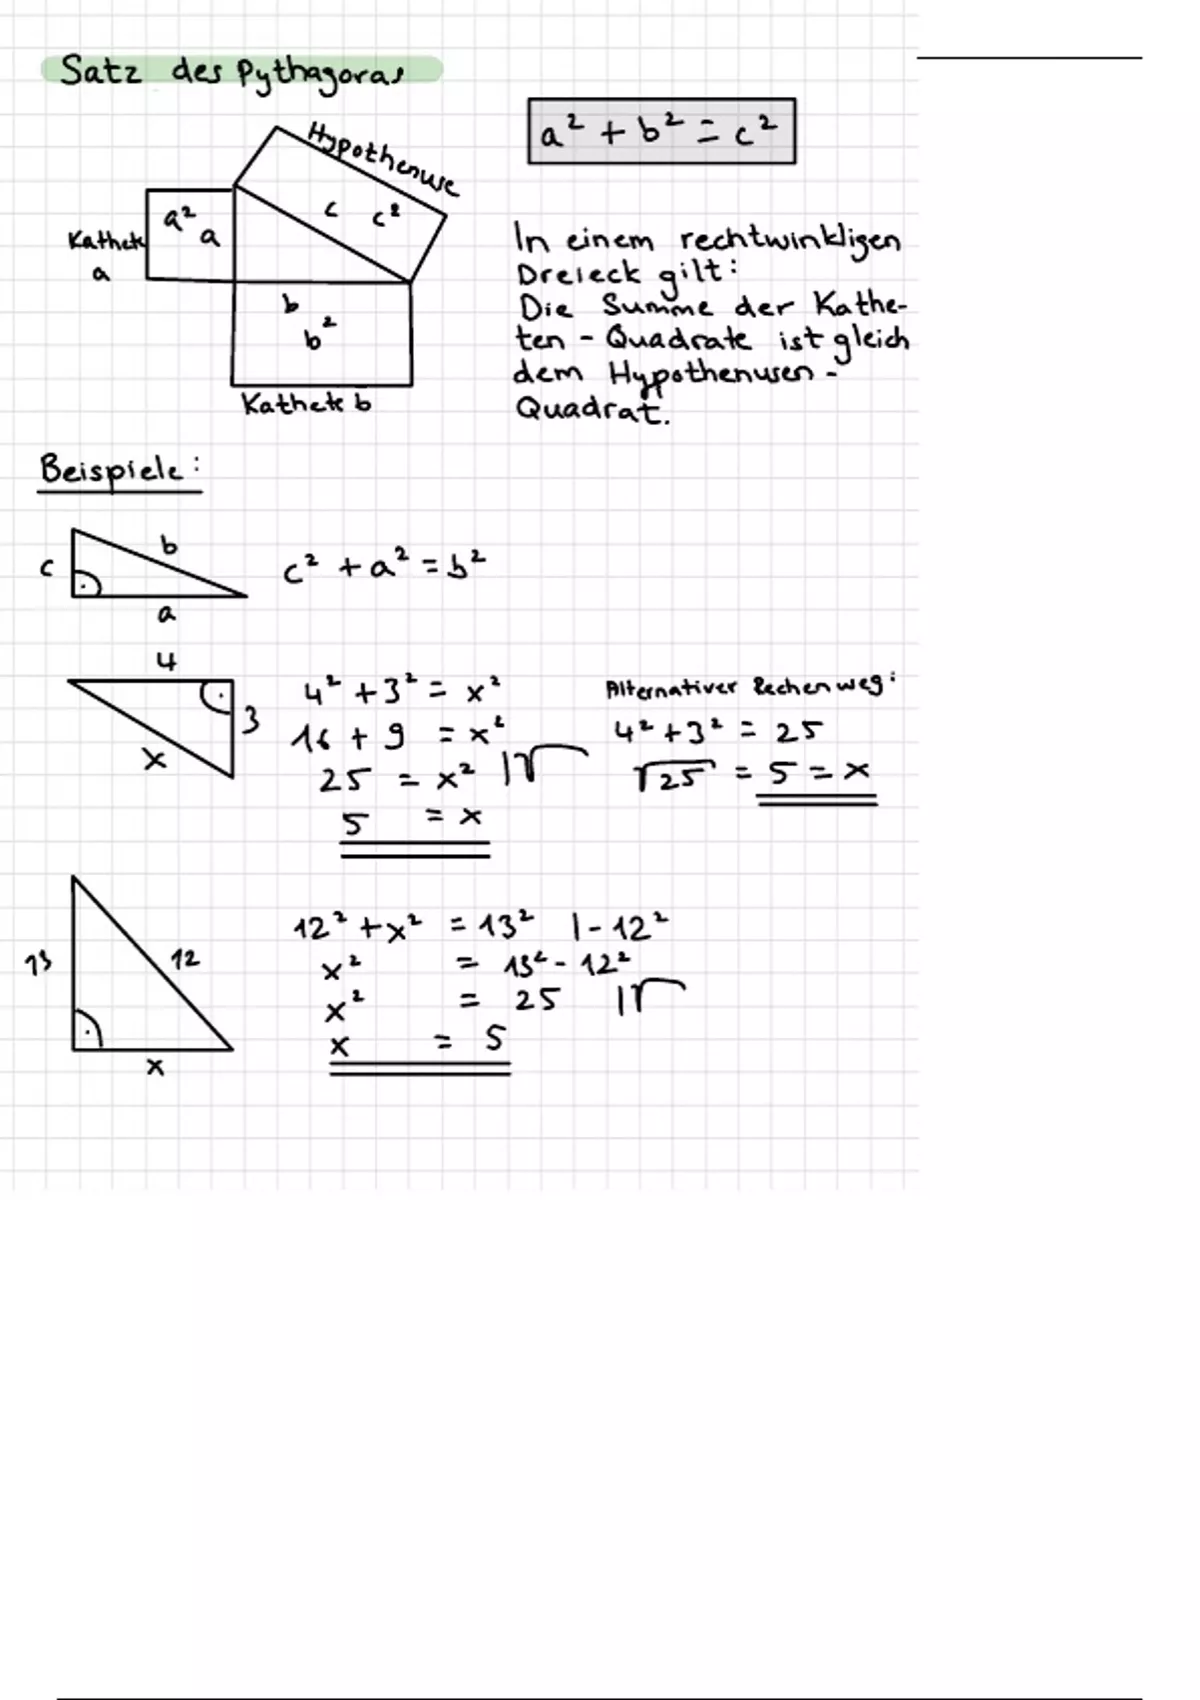 Satz des Pythagoras
a² + b² = c²
Hypothenuse
c c²
a²
a
Kathete
a
b
b²
Kathete b
In einem rechtwinkligen
Dreieck gilt:
Die Summe der Kathe-
ten - Quadrate ist gleich
dem Hypothenusen -
Quadrat.
Beispiele:
c
b
a
c² + a² = b²
4
3
x
4² + 3² = x²
16 + 9 = x²
25 = x² |√
5 = x
Alternativer Rechenweg:
4² + 3² = 25
√25 = 5 = x
13
12
x
12² + x² = 13² | - 12²
x² = 13² - 12²
x² = 25 |√
x = 5